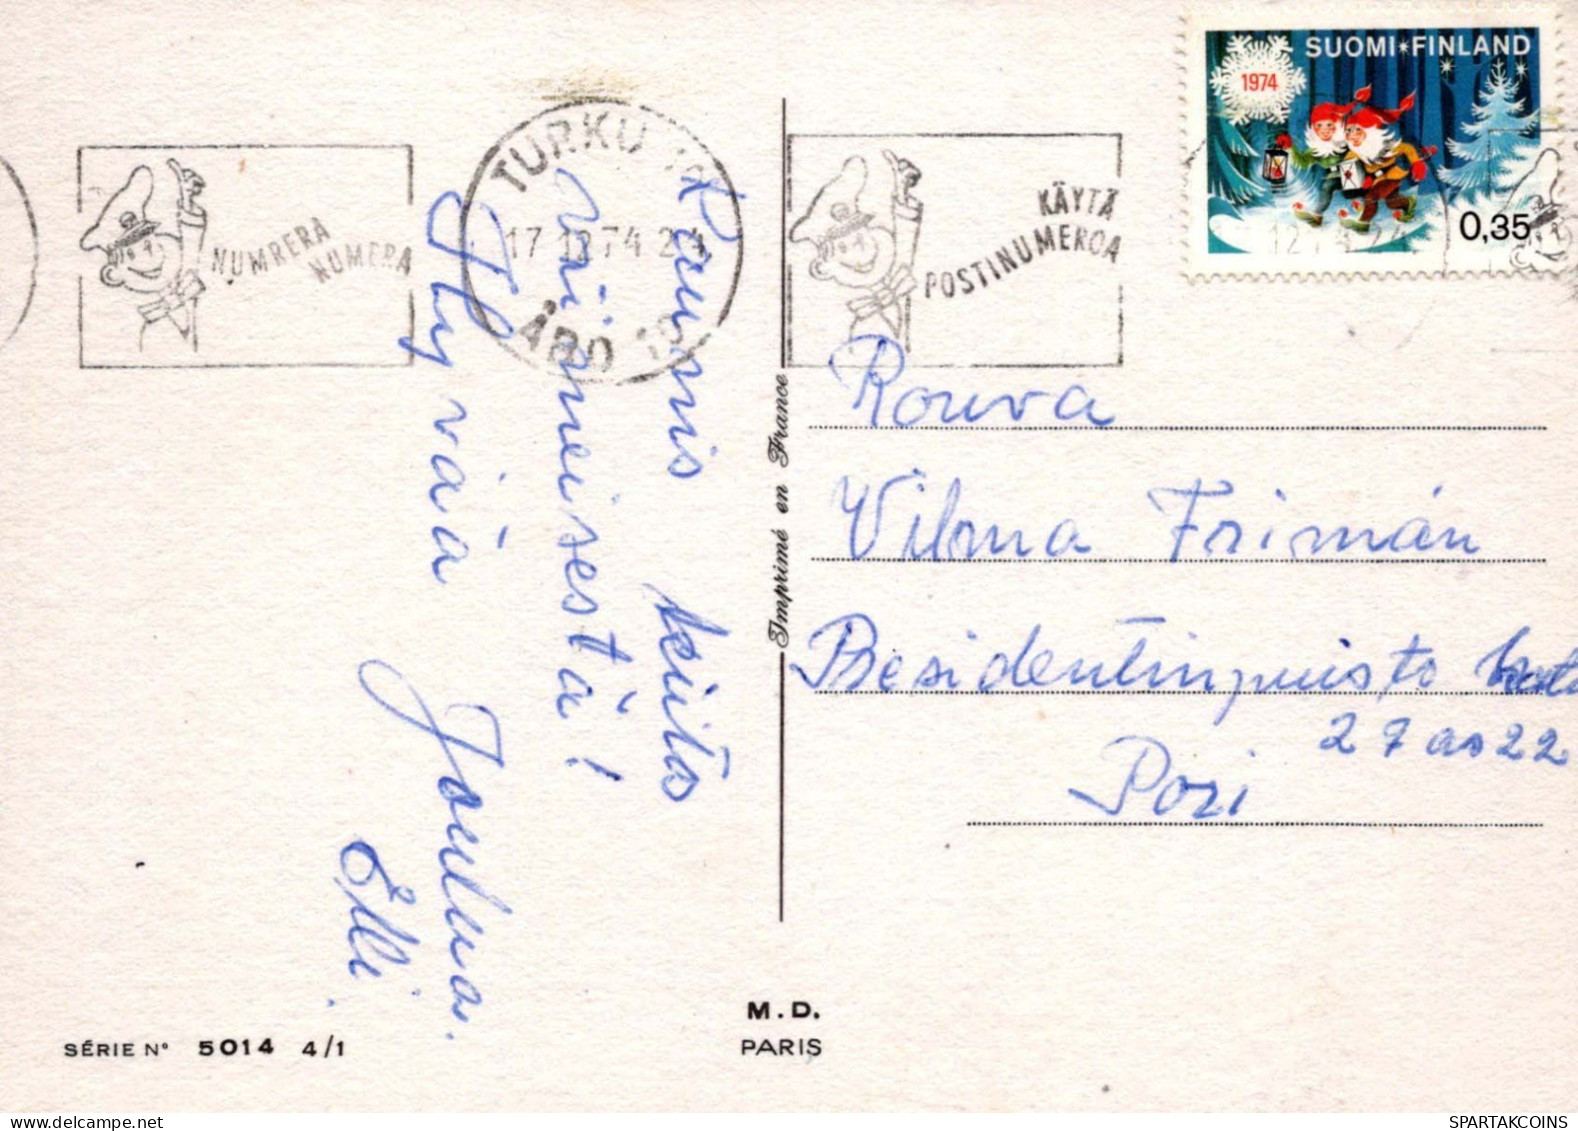 SUOMI FINLAND
1974
0,35
TURKU
17.12.74 24
ÅBO 10
NUMRERA
NUMERA
KÄYTÄ
POSTINUMEROA
Kaunis kiitos
viimeisestä!
Hyvää Joulua.
Elli.
Imprimé en France
Rouva
Vilma Frimán
Presidentinpuisto
27 as 22
Pori
M.D.
PARIS
SÉRIE N° 5014 4/1
SPARTAKCOINS